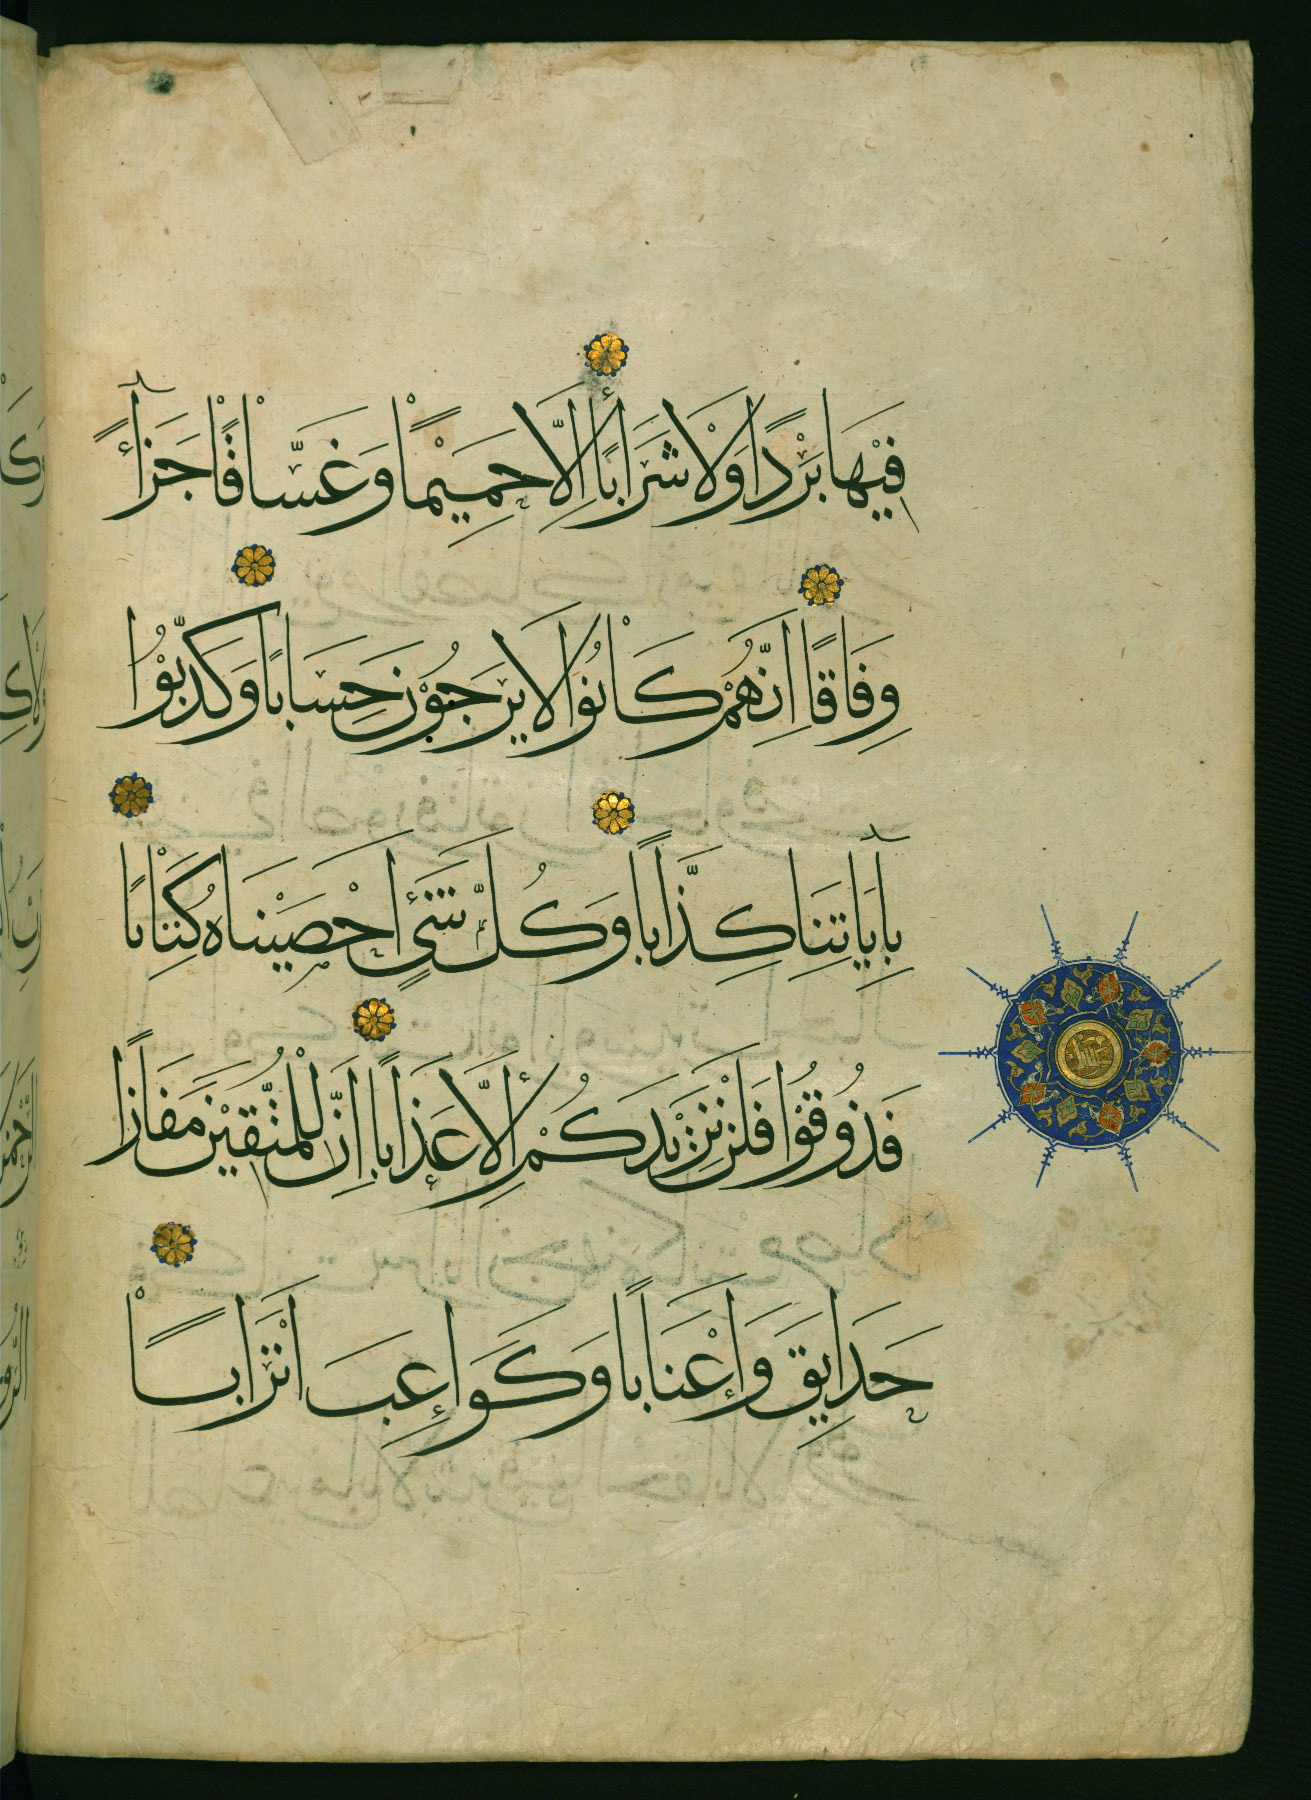 فِيْهَا بَرْدًا وَلَا شَرَابًا اِلَّا حَمِيْمًا وَغَسَّاقًا جَزَآءً
وِفَاقًا اِنَّهُمْ كَانُوْا لَا يَرْجُوْنَ حِسَابًا وَكَذَّبُوْا
بِاٰيَاتِنَا كِذَّابًا وَكُلَّ شَيْءٍ اَحْصَيْنَاهُ كِتَابًا
فَذُوْقُوْا فَلَنْ نَزِيْدَكُمْ اِلَّا عَذَابًا اِنَّ لِلْمُتَّقِيْنَ مَفَازًا
حَدَايِقَ وَاَعْنَابًا وَكَوَاعِبَ اَتْرَابًا